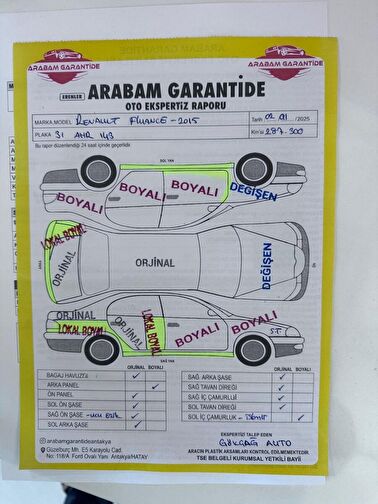 ARABAM GARANTİDE
ARABAM GARANTİDE
ERENLER ARABAM GARANTİDE
OTO EKSPERTİZ RAPORU
MARKA MODEL RENAULT FLUANCE - 2015 Tarih 02.01/2025
PLAKA 31 AHR 143 Km'si 287.300
Bu rapor düzenlendiği 24 saat içinde geçerlidir
SOL YAN
BOYALI BOYALI BOYALI DEĞİŞEN
LOKAL BOYALI
ORJİNAL ORJİNAL DEĞİŞEN
ARKA ÖN
LOKAL BOYALI ORJİNAL BOYALI BOYALI BOYALI S.T
SAĞ YAN
ORJİNAL BOYALI ORJİNAL BOYALI
BAGAJ HAVUZU ✓ SAĞ ARKA ŞASE ✓
ARKA PANEL ✓ SAĞ TAVAN DİREĞİ ✓
ÖN PANEL ✓ SAĞ İÇ ÇAMURLUK ✓
SOL ÖN ŞASE ✓ SOL TAVAN DİREĞİ ✓
SAĞ ÖN ŞASE - ucu ezik ✓ SOL İÇ ÇAMURLUK -
SOL ARKA ŞASE ✓
EKSPERTİZİ TALEP EDEN
GÖKÇAĞ AUTO
arabamgarantideantakya
Güzelburç Mh. E5 Karayolu Cad.
No: 118/A Ford Ovalı Yanı Antakya/HATAY
ARACIN PLASTİK AKSAMLARI KONTROL EDİLMEMEKTEDİR.
TSE BELGELİ KURUMSAL YETKİLİ BAYİİ